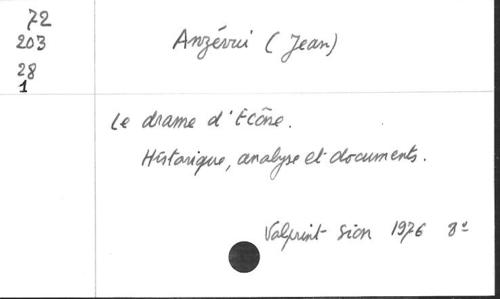 72
203
28
1
Anzévui (Jean)
Le drame d'Ecône.
Historique, analyse et documents.
Valprint Sion 1976 8°